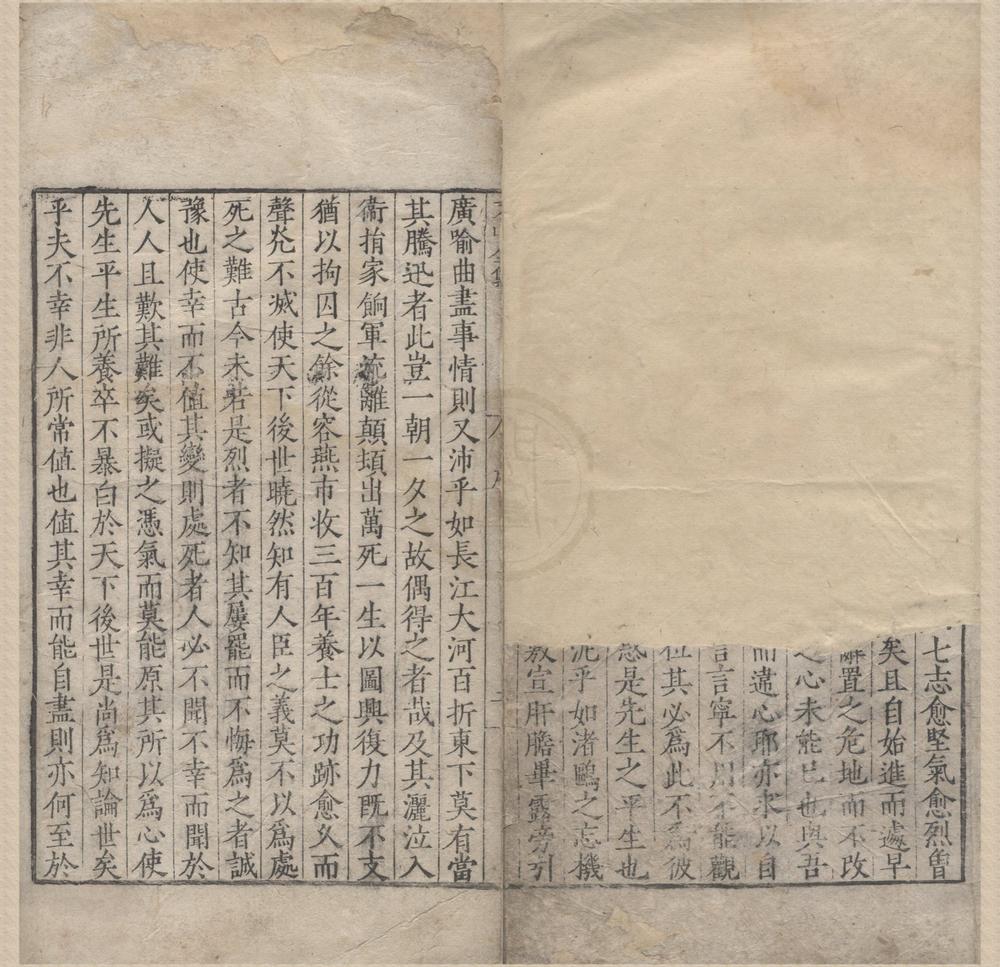 七志愈堅氣愈烈曾
矣且自始進而遽早
辭置之危地而不改
之心未能已也與吾
而違心耶亦求以自
言言寧不
能觀
位其必為此不為彼
是先生之平生也
泥乎如渚鷗之志機
敷宣肝膽畢露旁引
廣喻曲盡事情則又沛乎如長江大河百折東下莫有當
其騰迅者此豈一朝一夕之故偶得之者哉及其灑泣入
衞捐家餉軍流離顛頓出萬死一生以圖興復力既不支
猶以拘囚之餘從容燕市收三百年養士之功跡愈久而
聲光不滅使天下後世曉然知有人臣之義莫不以為處
死之難古今未若是烈者不知其屢罷而不悔為之者誠
豫也使幸而不值其變則處死者人必不聞不幸而聞於
人人且歎其難矣或擬之憑氣而莫能原其所以為心使
先生平生所養卒不暴白於天下後世是尚為知論世矣
乎夫不幸非人所常值也值其幸而能自盡則亦何至於